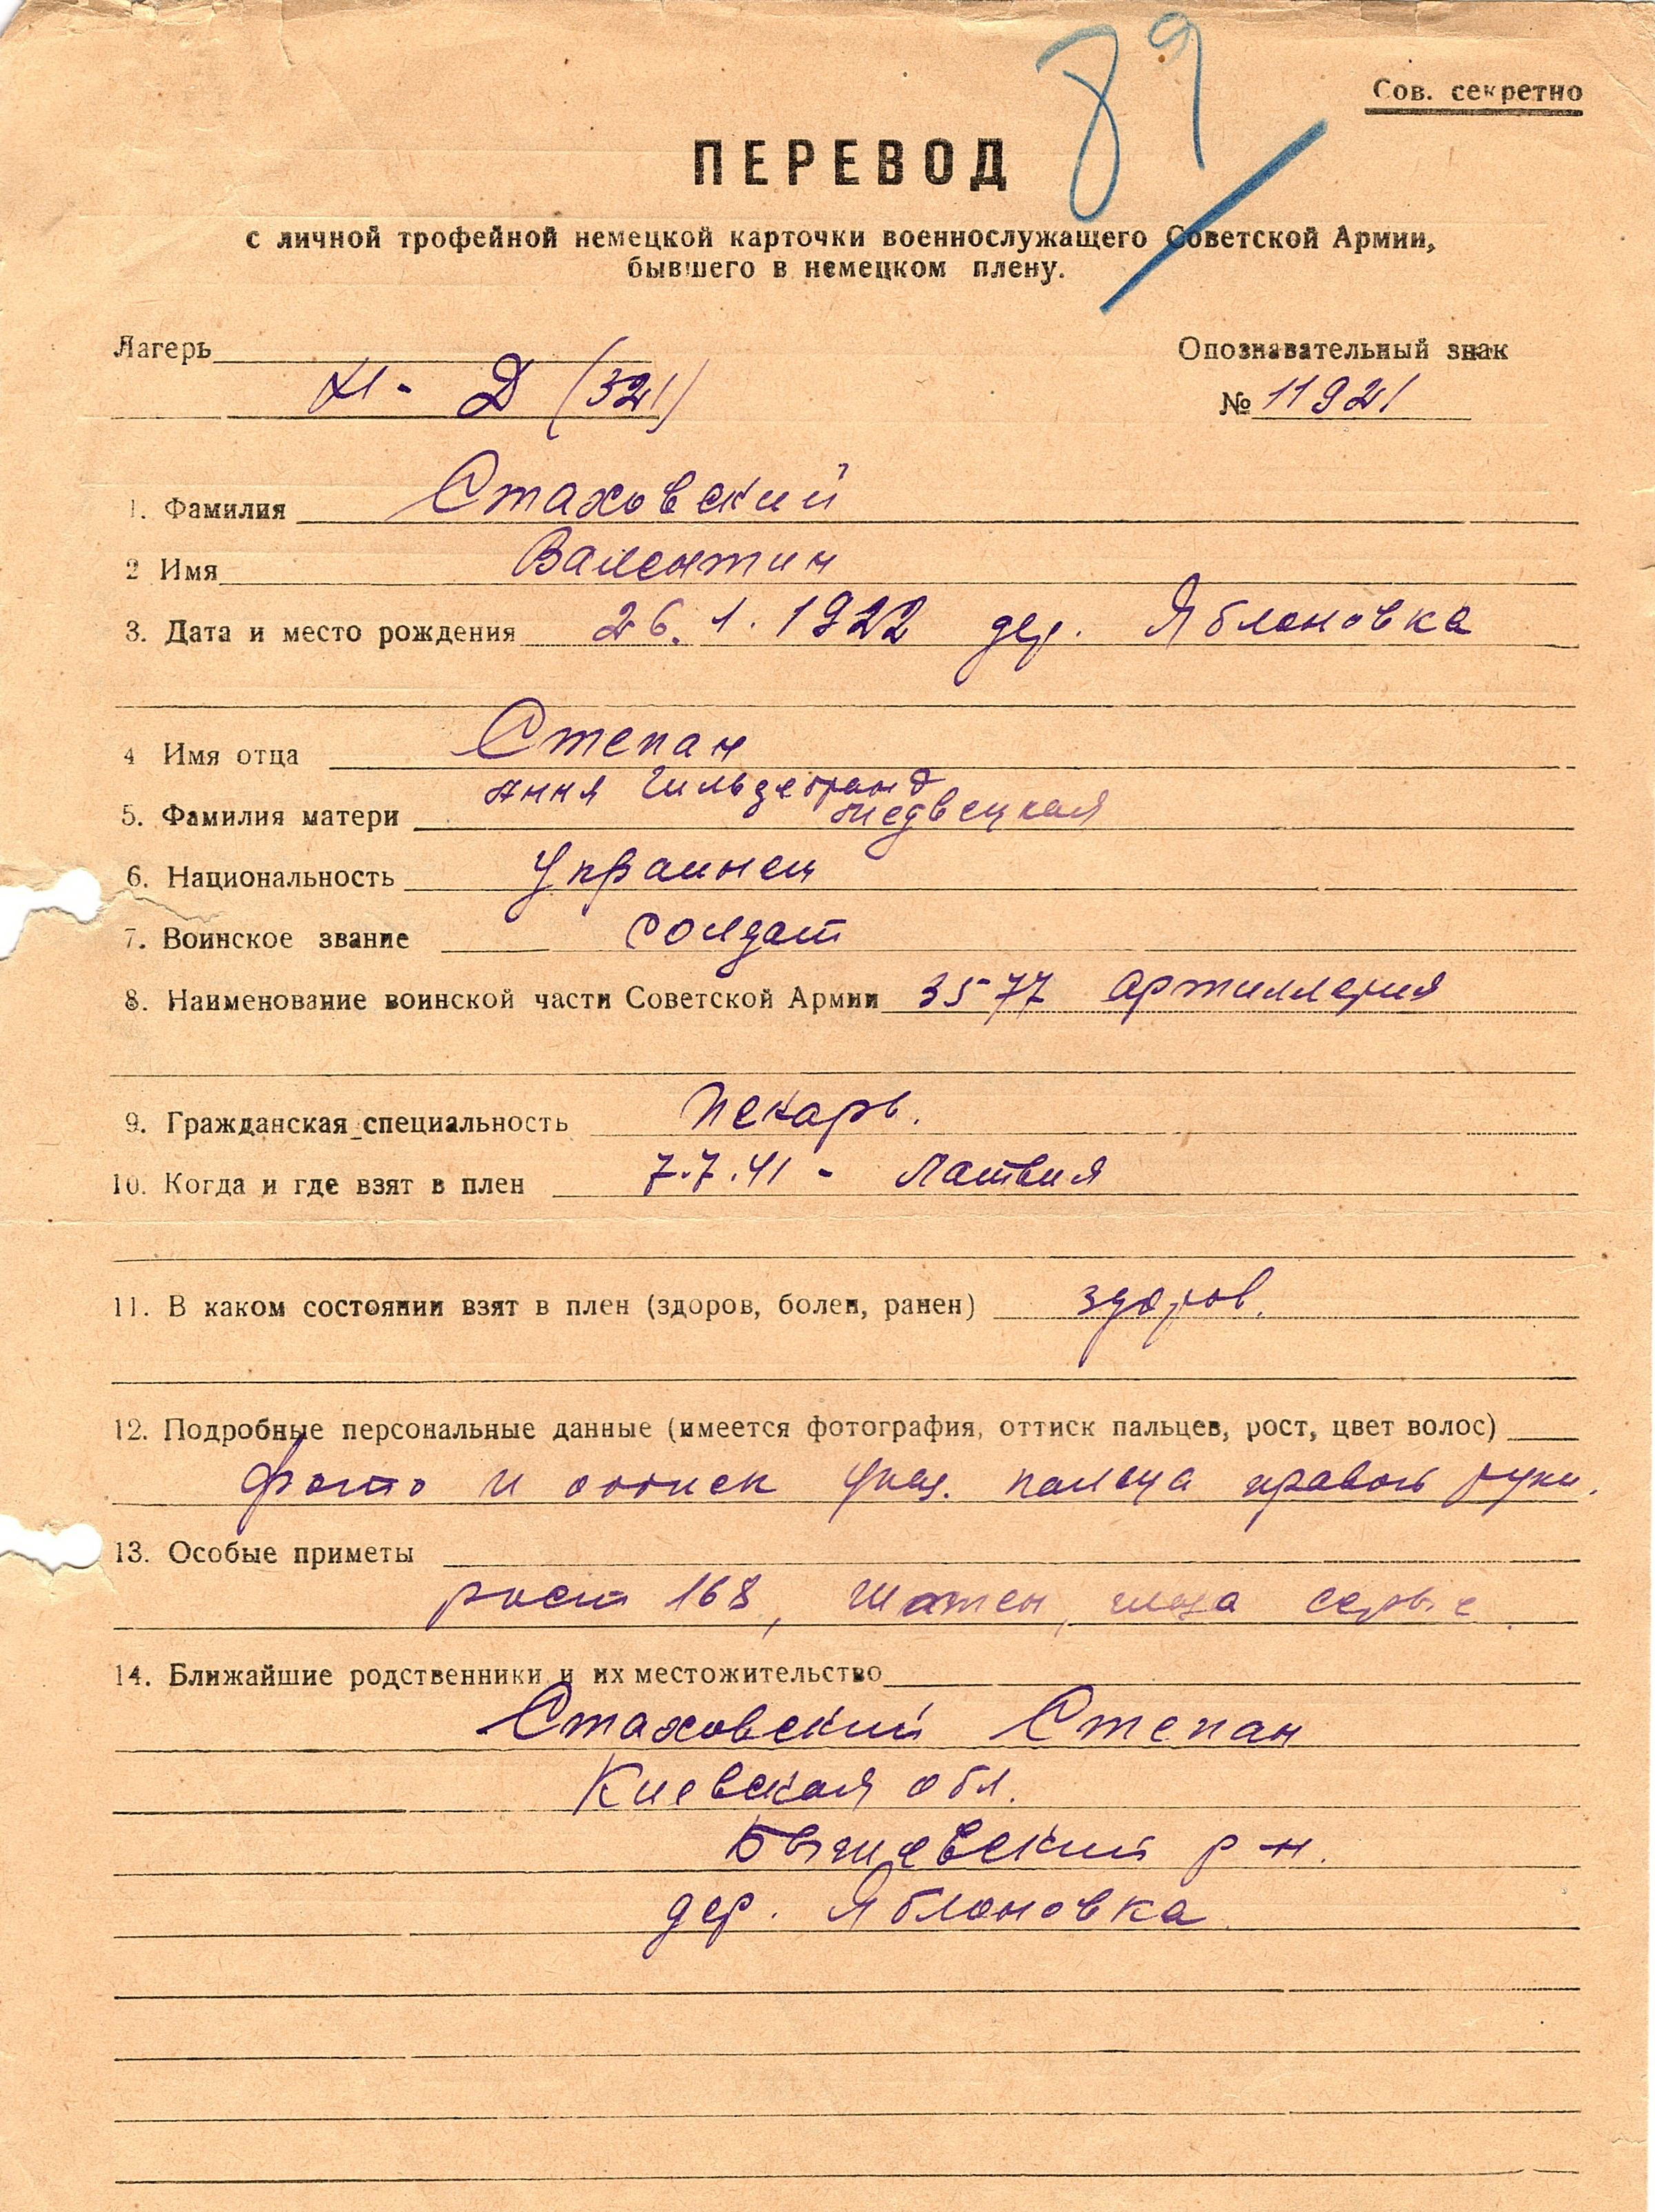 89
Сов. секретно
ПЕРЕВОД
с личной трофейной немецкой карточки военнослужащего Советской Армии,
бывшего в немецком плену.
Лагерь
XI - Д (321)
Опознавательный знак
№ 11921
1. Фамилия Стаховский
2 Имя Валентин
3. Дата и место рождения 26. 1. 1922 дер. Яблоновка
4 Имя отца Степан
Анна Гильдебранд
5. Фамилия матери Медвецкая
6. Национальность Украинец
7. Воинское звание солдат
8. Наименование воинской части Советской Армии 3577 артиллерия
9. Гражданская специальность Пекарь.
10. Когда и где взят в плен 7.7.41 - Латвия
11. В каком состоянии взят в плен (здоров, болен, ранен) здоров.
12. Подробные персональные данные (имеется фотография, оттиск пальцев, рост, цвет волос)
фото и оттиск указ. пальца правой руки.
13. Особые приметы
рост 168, шатен, глаза серые
14. Ближайшие родственники и их местожительство
Стаховский Степан
Киевская обл.
р-н.
дер. Яблоновка